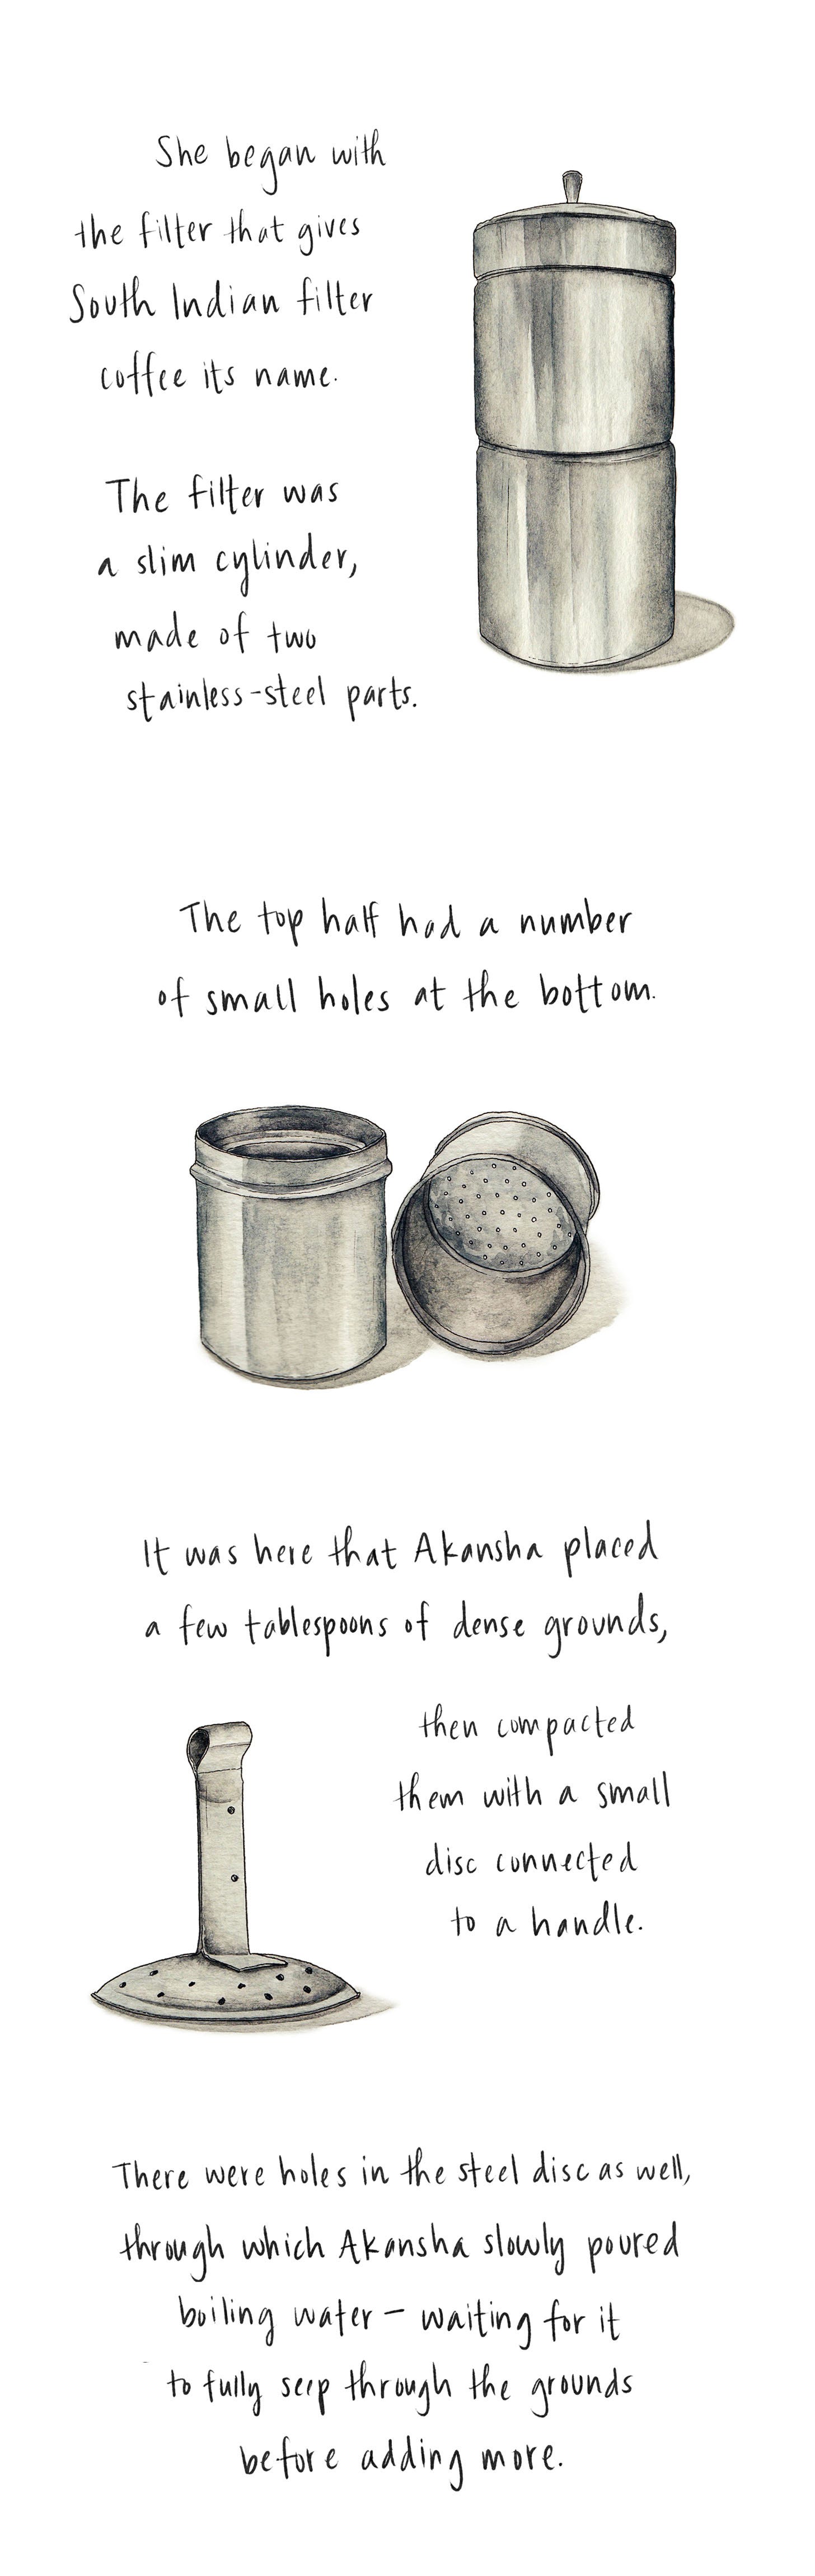 She began with
the filter that gives
South Indian filter
coffee its name.
The filter was
a slim cylinder,
made of two
stainless-steel parts.
The top half had a number
of small holes at the bottom.
It was here that Akansha placed
a few tablespoons of dense grounds,
then compacted
them with a small
disc connected
to a handle.
There were holes in the steel disc as well,
through which Akansha slowly poured
boiling water – waiting for it
to fully seep through the grounds
before adding more.